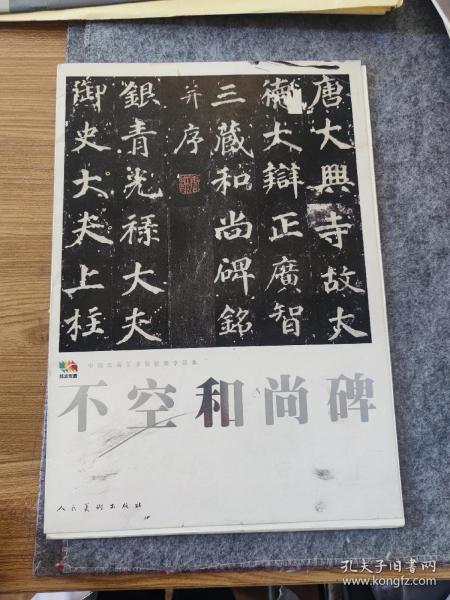 唐大興寺故大
德大辯正廣智
三藏和尚碑銘
并序
銀青光祿大夫
御史大夫上柱
不空和尚碑
人民美術出版社
孔夫子旧书网
www.kongfz.com